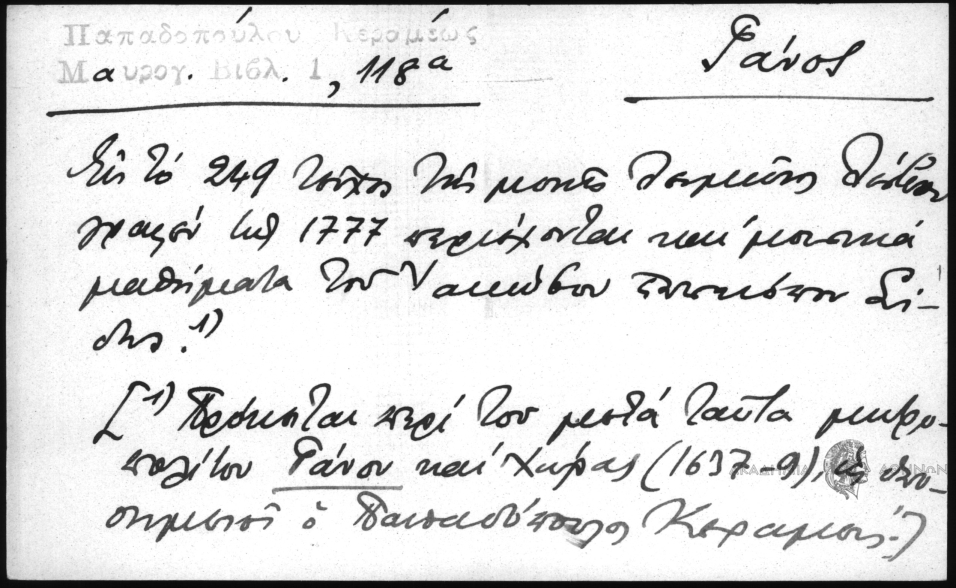 Παπαδοπούλου Κεραμέως
Μαυρογ. Βιβλ. 1, 118α
Γάνος
Εἰς τό 249 τεῦχος τῆς μονῆς
γραφέν 1777 περιέχονται καί μουσικά
μαθήματα τοῦ Ἰακώβου ἐπισκόπου Σί-
δης.¹⁾
[¹⁾ Πρόκειται περί τοῦ μετά ταῦτα μητρο-
πολίτου Γάνου καί Χώρας (1637-9), ὡς ὑπο-
σημειοῖ ὁ Παπαδόπουλος Κεραμεύς.]
ΑΚΑΔΗΜΙΑ ΑΘΗΝΩΝ